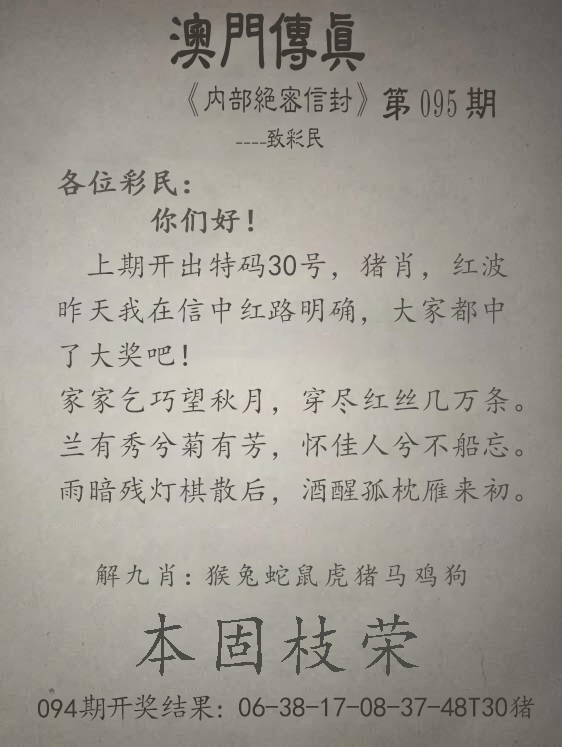 澳門傳真
《内部絕密信封》第095期
----致彩民
各位彩民：
你们好！
上期开出特码30号，猪肖，红波
昨天我在信中红路明确，大家都中
了大奖吧！
家家乞巧望秋月，穿尽红丝几万条。
兰有秀兮菊有芳，怀佳人兮不船忘。
雨暗残灯棋散后，酒醒孤枕雁来初。
解九肖：猴兔蛇鼠虎猪马鸡狗
本固枝荣
094期开奖结果：06-38-17-08-37-48T30猪